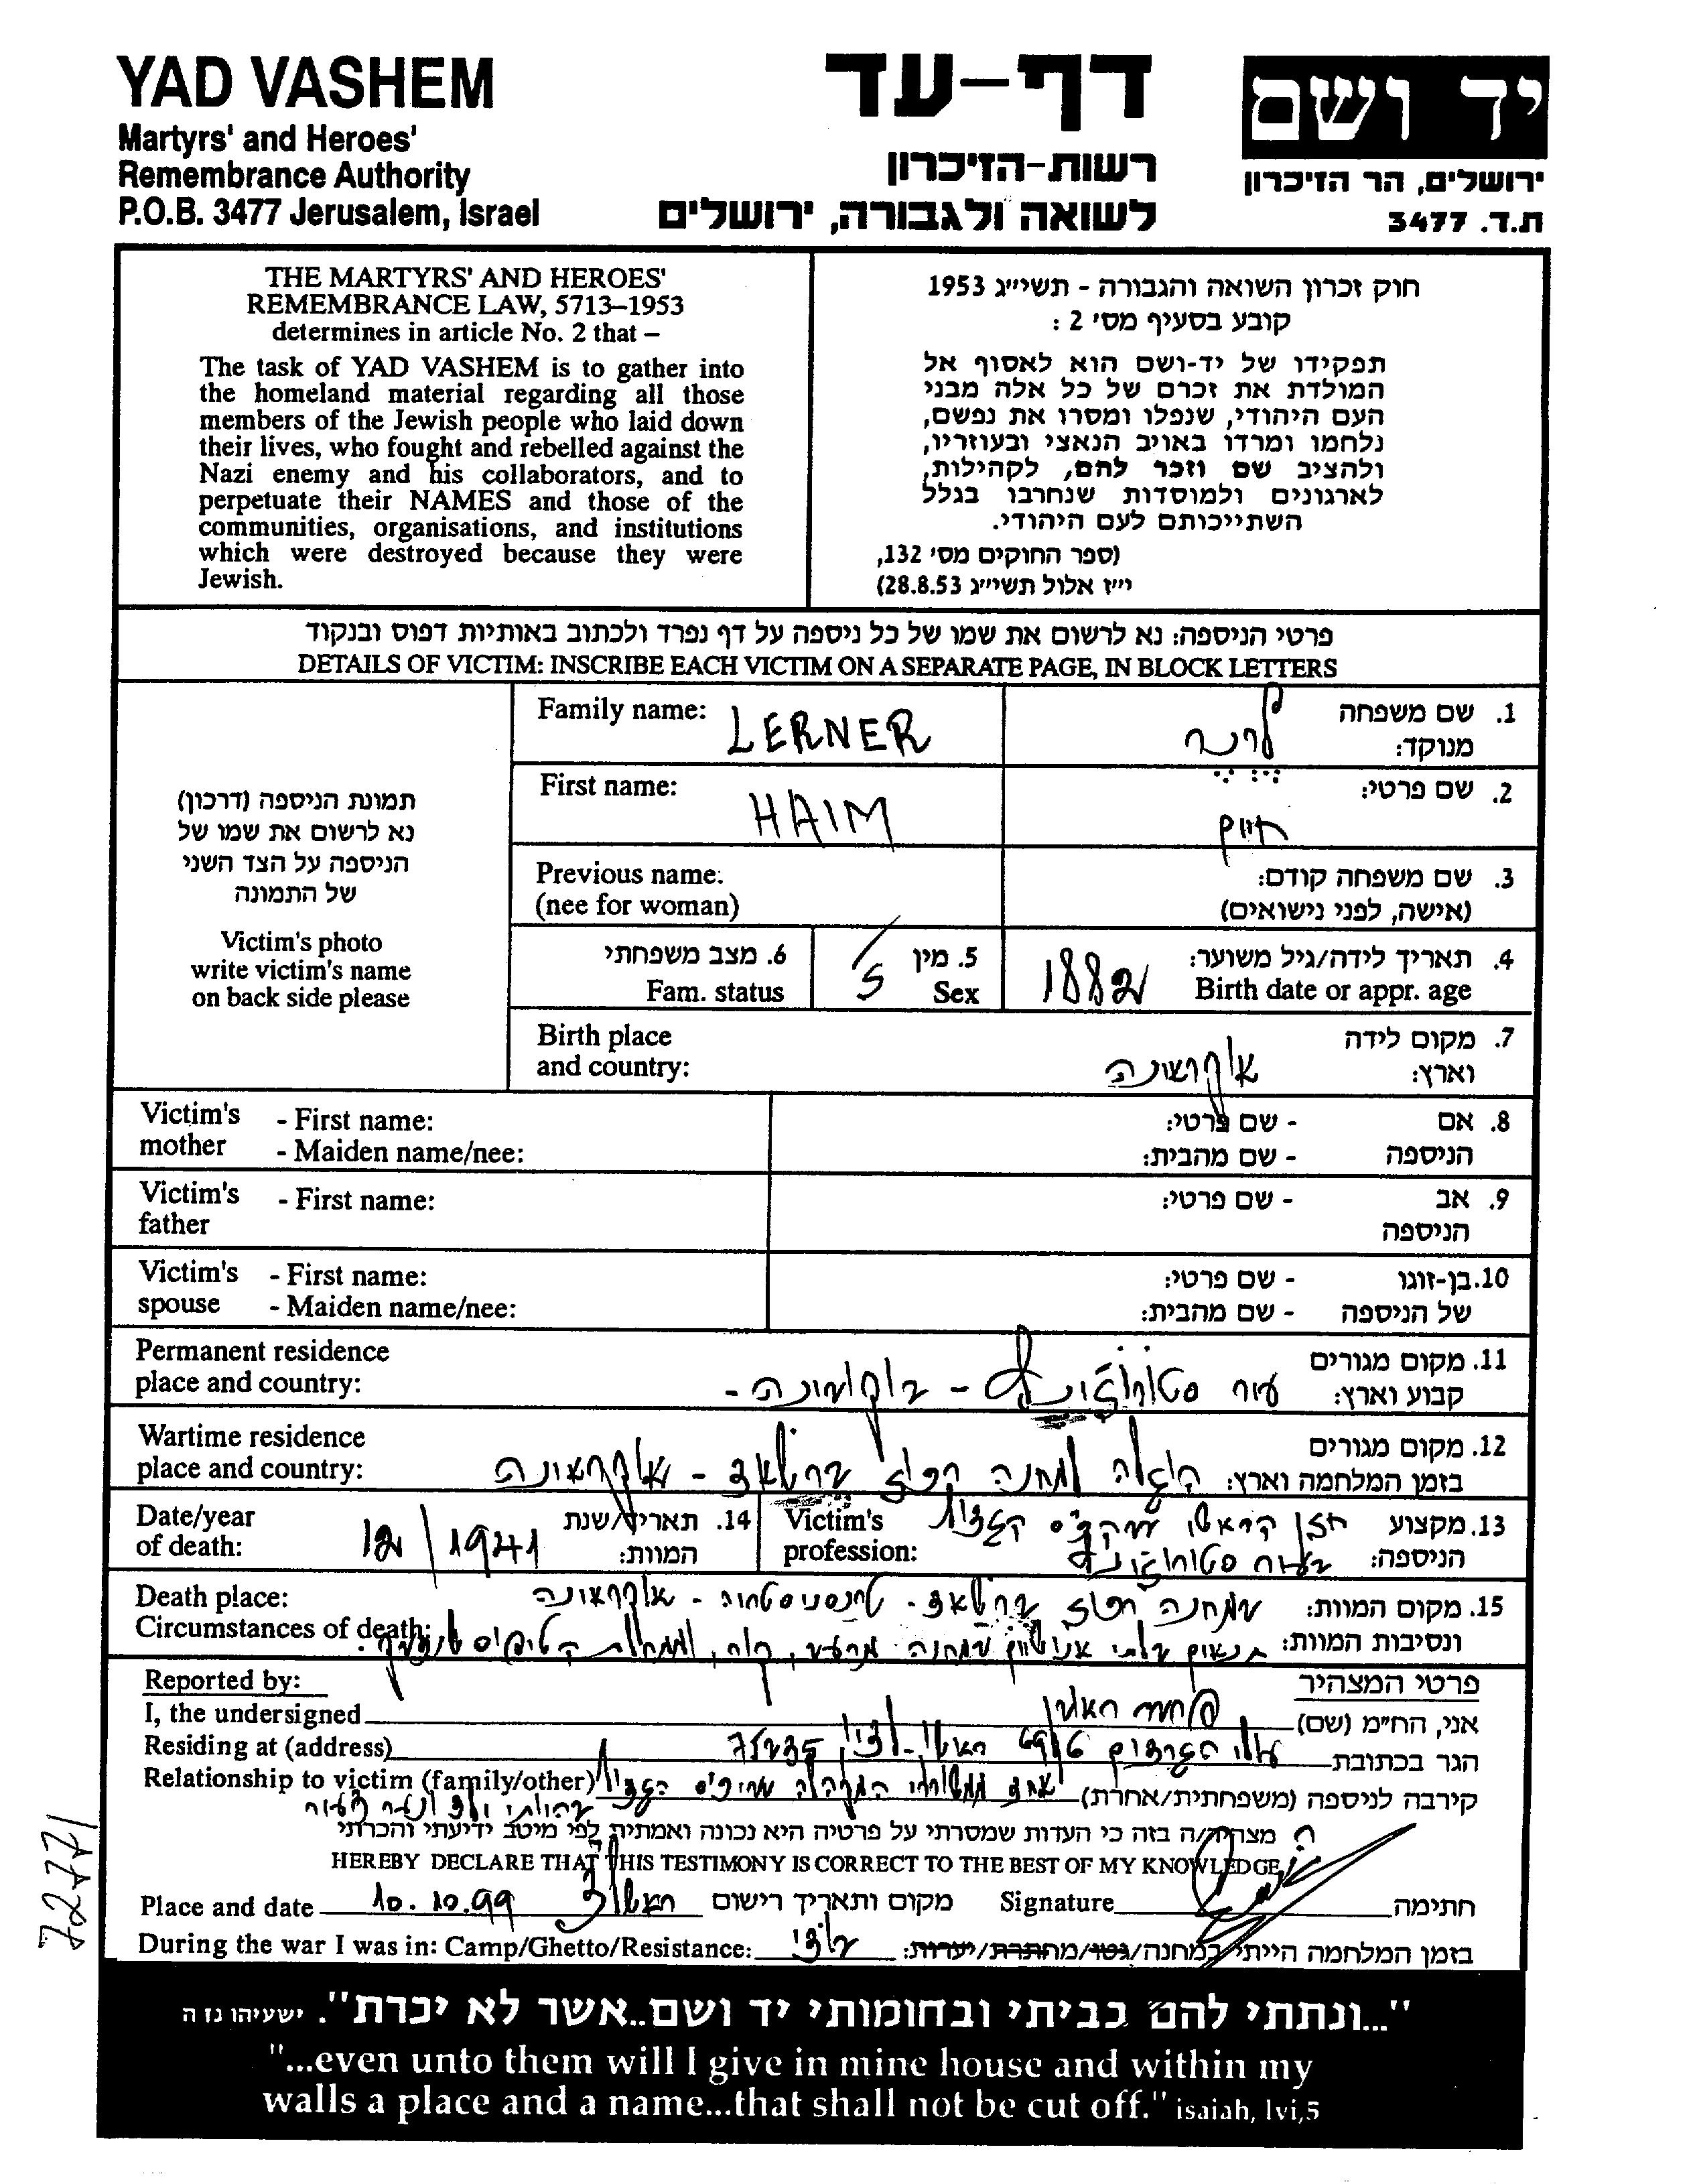 YAD VASHEM
Martyrs' and Heroes'
Remembrance Authority
P.O.B. 3477 Jerusalem, Israel
דף-עד
רשות-הזיכרון
לשואה ולגבורה, ירושלים
יד ושם
ירושלים, הר הזיכרון
ת.ד. 3477
THE MARTYRS' AND HEROES'
REMEMBRANCE LAW, 5713–1953
determines in article No. 2 that –
The task of YAD VASHEM is to gather into
the homeland material regarding all those
members of the Jewish people who laid down
their lives, who fought and rebelled against the
Nazi enemy and his collaborators, and to
perpetuate their NAMES and those of the
communities, organisations, and institutions
which were destroyed because they were
Jewish.
חוק זכרון השואה והגבורה - תשי״ג 1953
קובע בסעיף מס׳ 2 :
תפקידו של יד-ושם הוא לאסוף אל
המולדת את זכרם של כל אלה מבני
העם היהודי, שנפלו ומסרו את נפשם,
נלחמו ומרדו באויב הנאצי ובעוזריו,
ולהציב שם וזכר להם, לקהילות,
לארגונים ולמוסדות שנחרבו בגלל
השתייכותם לעם היהודי.
(ספר החוקים מס׳ 132,
י״ז אלול תשי״ג 28.8.53)
פרטי הניספה: נא לרשום את שמו של כל ניספה על דף נפרד ולכתוב באותיות דפוס ובנקוד
DETAILS OF VICTIM: INSCRIBE EACH VICTIM ON A SEPARATE PAGE, IN BLOCK LETTERS
תמונת הניספה (דרכון)
נא לרשום את שמו של
הניספה על הצד השני
של התמונה
Victim's photo
write victim's name
on back side please
Family name: LERNER
1. שם משפחה
מנוקד: לרנר
First name: HAIM
2. שם פרטי: חיים
Previous name:
(nee for woman)
3. שם משפחה קודם:
(אישה, לפני נישואים)
6. מצב משפחתי
Fam. status
5. מין
Sex
4. תאריך לידה/גיל משוער:
Birth date or appr. age 1882
Birth place
and country:
7. מקום לידה
וארץ: אוקראינה
Victim's mother - First name:
- Maiden name/nee:
8. אם הניספה - שם פרטי:
- שם מהבית:
Victim's father - First name:
9. אב הניספה - שם פרטי:
Victim's spouse - First name:
- Maiden name/nee:
10. בן-זוגו של הניספה - שם פרטי:
- שם מהבית:
Permanent residence
place and country:
11. מקום מגורים
קבוע וארץ: עיר סטורוז׳ינץ - בוקובינה -
Wartime residence
place and country:
12. מקום מגורים
בזמן המלחמה וארץ: הוגלה למחנה ברשאד - אוקראינה
Date/year
of death: 12/1941
14. תאריך/שנת
המוות:
Victim's
profession:
13. מקצוע
הניספה: חזן הראשי
בעיר סטורוז׳ינץ
Death place:
15. מקום המוות: במחנה ברשאד - טרנסניסטריה - אוקראינה
Circumstances of death:
ונסיבות המוות: תנאים בלתי אנושיים במחנה מרעב, קור, ומחלת הטיפוס
Reported by:
פרטי המצהיר
I, the undersigned
אני, הח״מ (שם)
Residing at (address)
הגר בכתובת עולי הגרדום ראשון-לציון 75235
Relationship to victim (family/other)
קירבה לניספה (משפחתית/אחרת) אחד ממשוררי המקהלה
בהיותי ילד ונער צעיר
מצהיר/ה בזה כי העדות שמסרתי על פרטיה היא נכונה ואמתית לפי מיטב ידיעתי והכרתי
HEREBY DECLARE THAT THIS TESTIMONY IS CORRECT TO THE BEST OF MY KNOWLEDGE
Place and date 10.10.99 ראשל״צ מקום ותאריך רישום
Signature
חתימה
During the war I was in: Camp/Ghetto/Resistance:
בזמן המלחמה הייתי במחנה/גטו/מחתרת/יערות:
"...ונתתי להם בביתי ובחומותי יד ושם..אשר לא יכרת". ישעיהו נז ה
"...even unto them will I give in mine house and within my
walls a place and a name...that shall not be cut off." isaiah, lvi,5